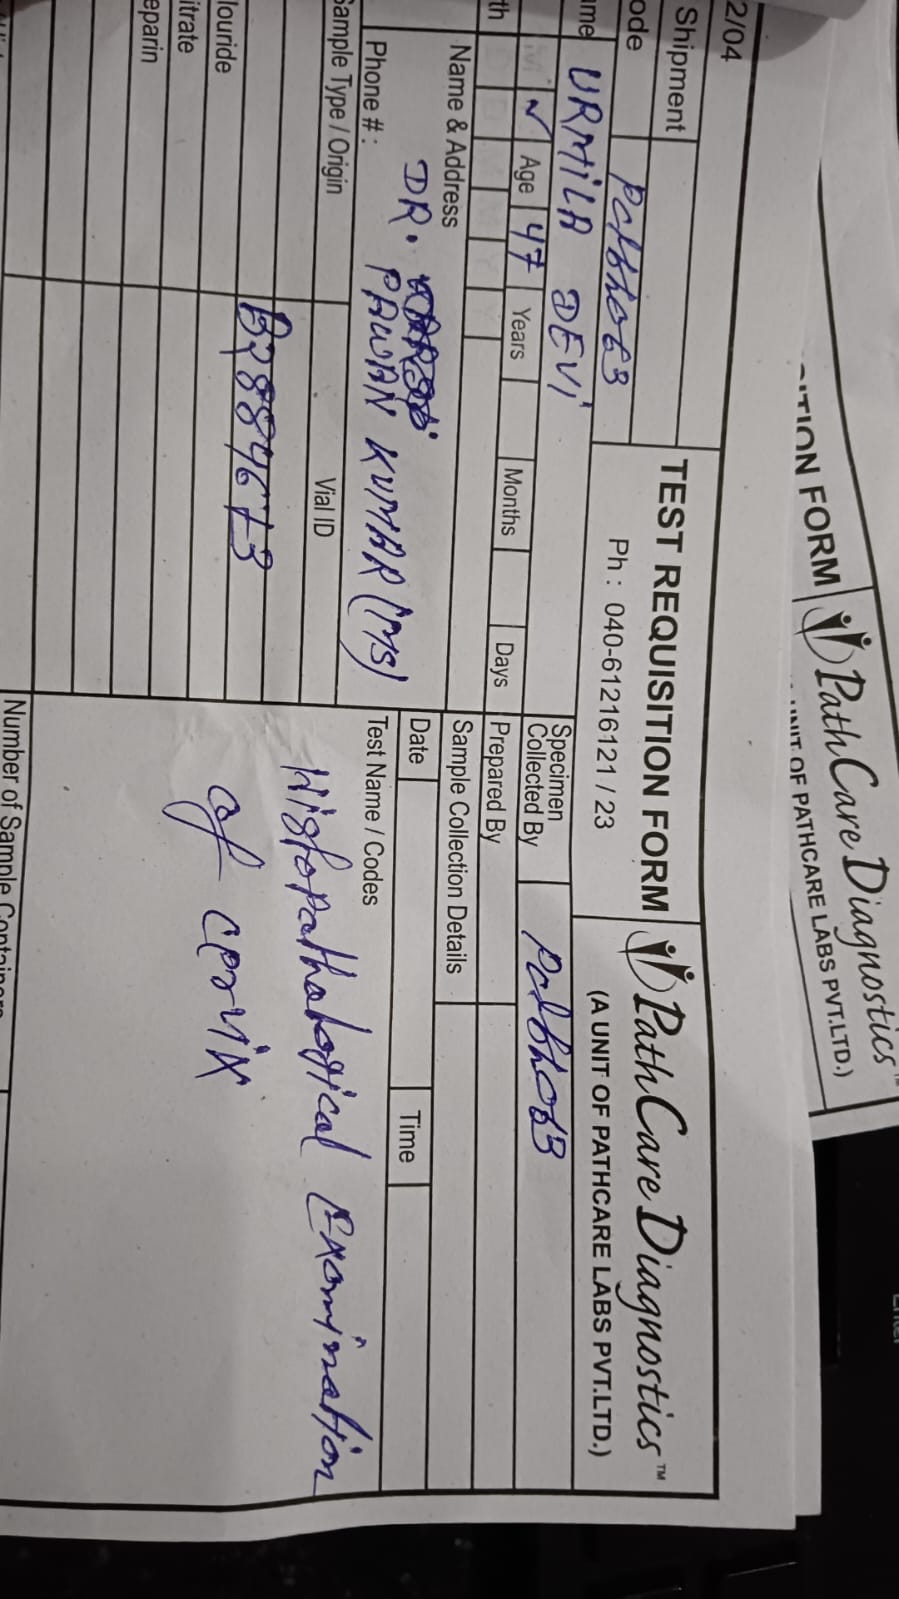 ITION FORM
PathCare Diagnostics™
UNIT OF PATHCARE LABS PVT.LTD.)
2/04
Shipment
TEST REQUISITION FORM
PathCare Diagnostics™
ode
Ph : 040-61216121 / 23
(A UNIT OF PATHCARE LABS PVT.LTD.)
ame URMILA DEVi
Specimen
Collected By
✓ Age 47 Years Months Days
Prepared By
th
Sample Collection Details
Name & Address
DR. PAWAN KUMAR (MS)
Date
Time
Phone # :
Test Name / Codes
Sample Type / Origin
Vial ID
Histopathalogical Examination
of cervix
louride
itrate
eparin
Number of Sample Containers
Enter